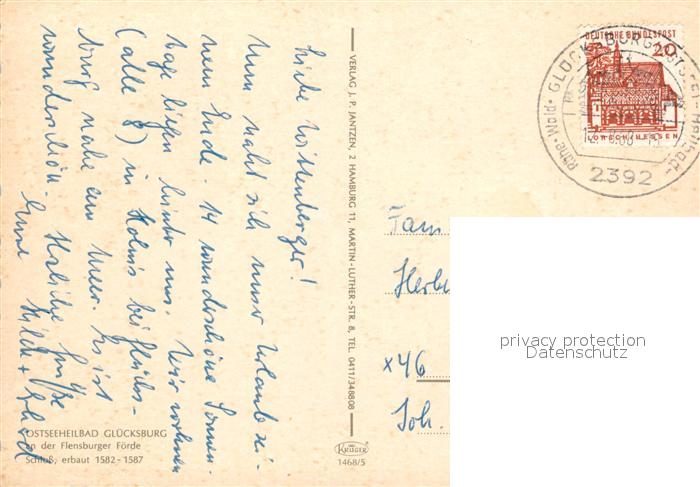 Liebe Wittenberger!
Nun naht sich unser Urlaub sei-
nem Ende. 14 wunderschöne Sonnen-
tage liegen hinter uns. Wir wohnen
(alle 8) in Holnis bei Glücks-
burg nahe am Meer. Es ist
wunderschön. Herzliche Grüße
Eure
OSTSEEHEILBAD GLÜCKSBURG
an der Flensburger Förde
Schloß, erbaut 1582-1587
VERLAG J. P. JANTZEN, 2 HAMBURG 11, MARTIN-LUTHER-STR. 8, TEL. 0411/348808
KRÜGER
1468/5
DEUTSCHE BUNDESPOST
20
LORSCH/HESSEN
GLÜCKSBURG (OSTSEE)
Ruhe · Wald ·
2392
Fam
Herb
x46
Joh.
privacy protection
Datenschutz